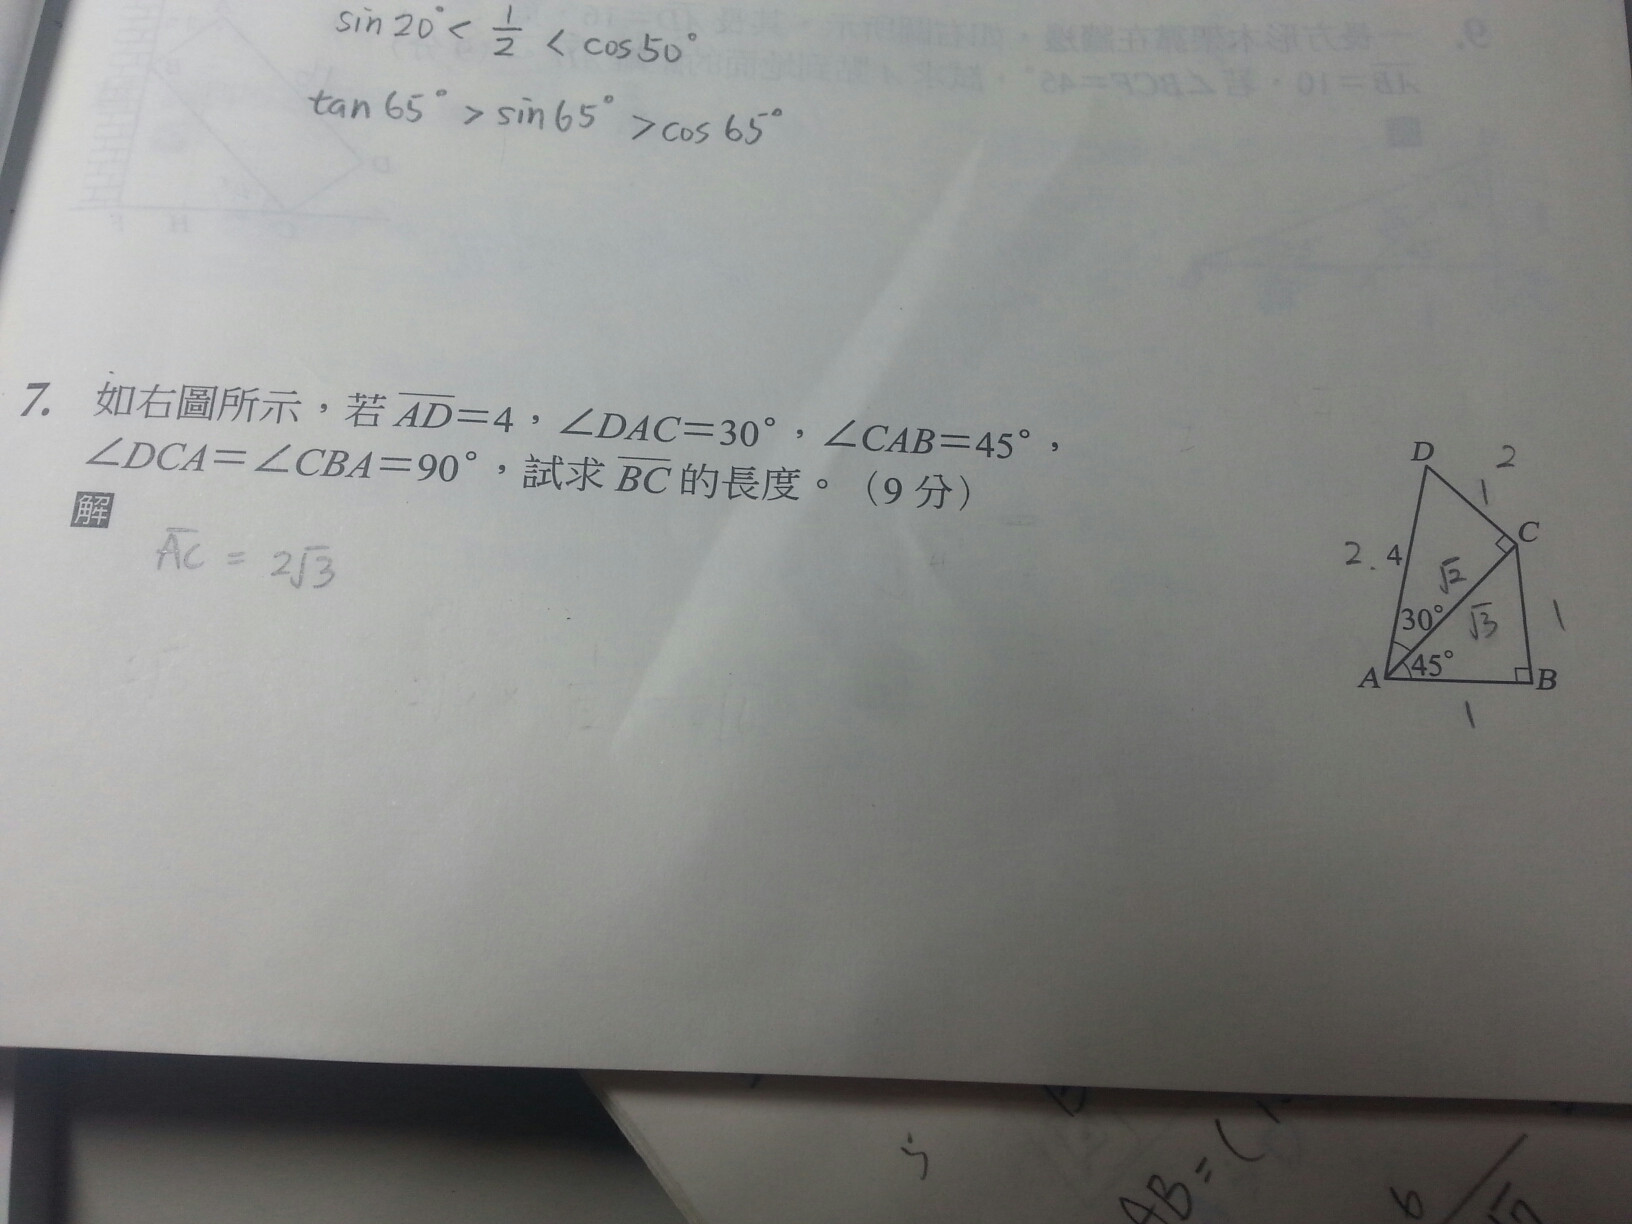 sin 20° < 1/2 < cos 50°
tan 65° > sin 65° > cos 65°
7. 如右圖所示，若 AD=4，∠DAC=30°，∠CAB=45°，
∠DCA=∠CBA=90°，試求 BC 的長度。（9 分）
解
AC = 2√3
D 2
1
C
2. 4
√2
30° √3 1
A 45° B
1
AB=(
6